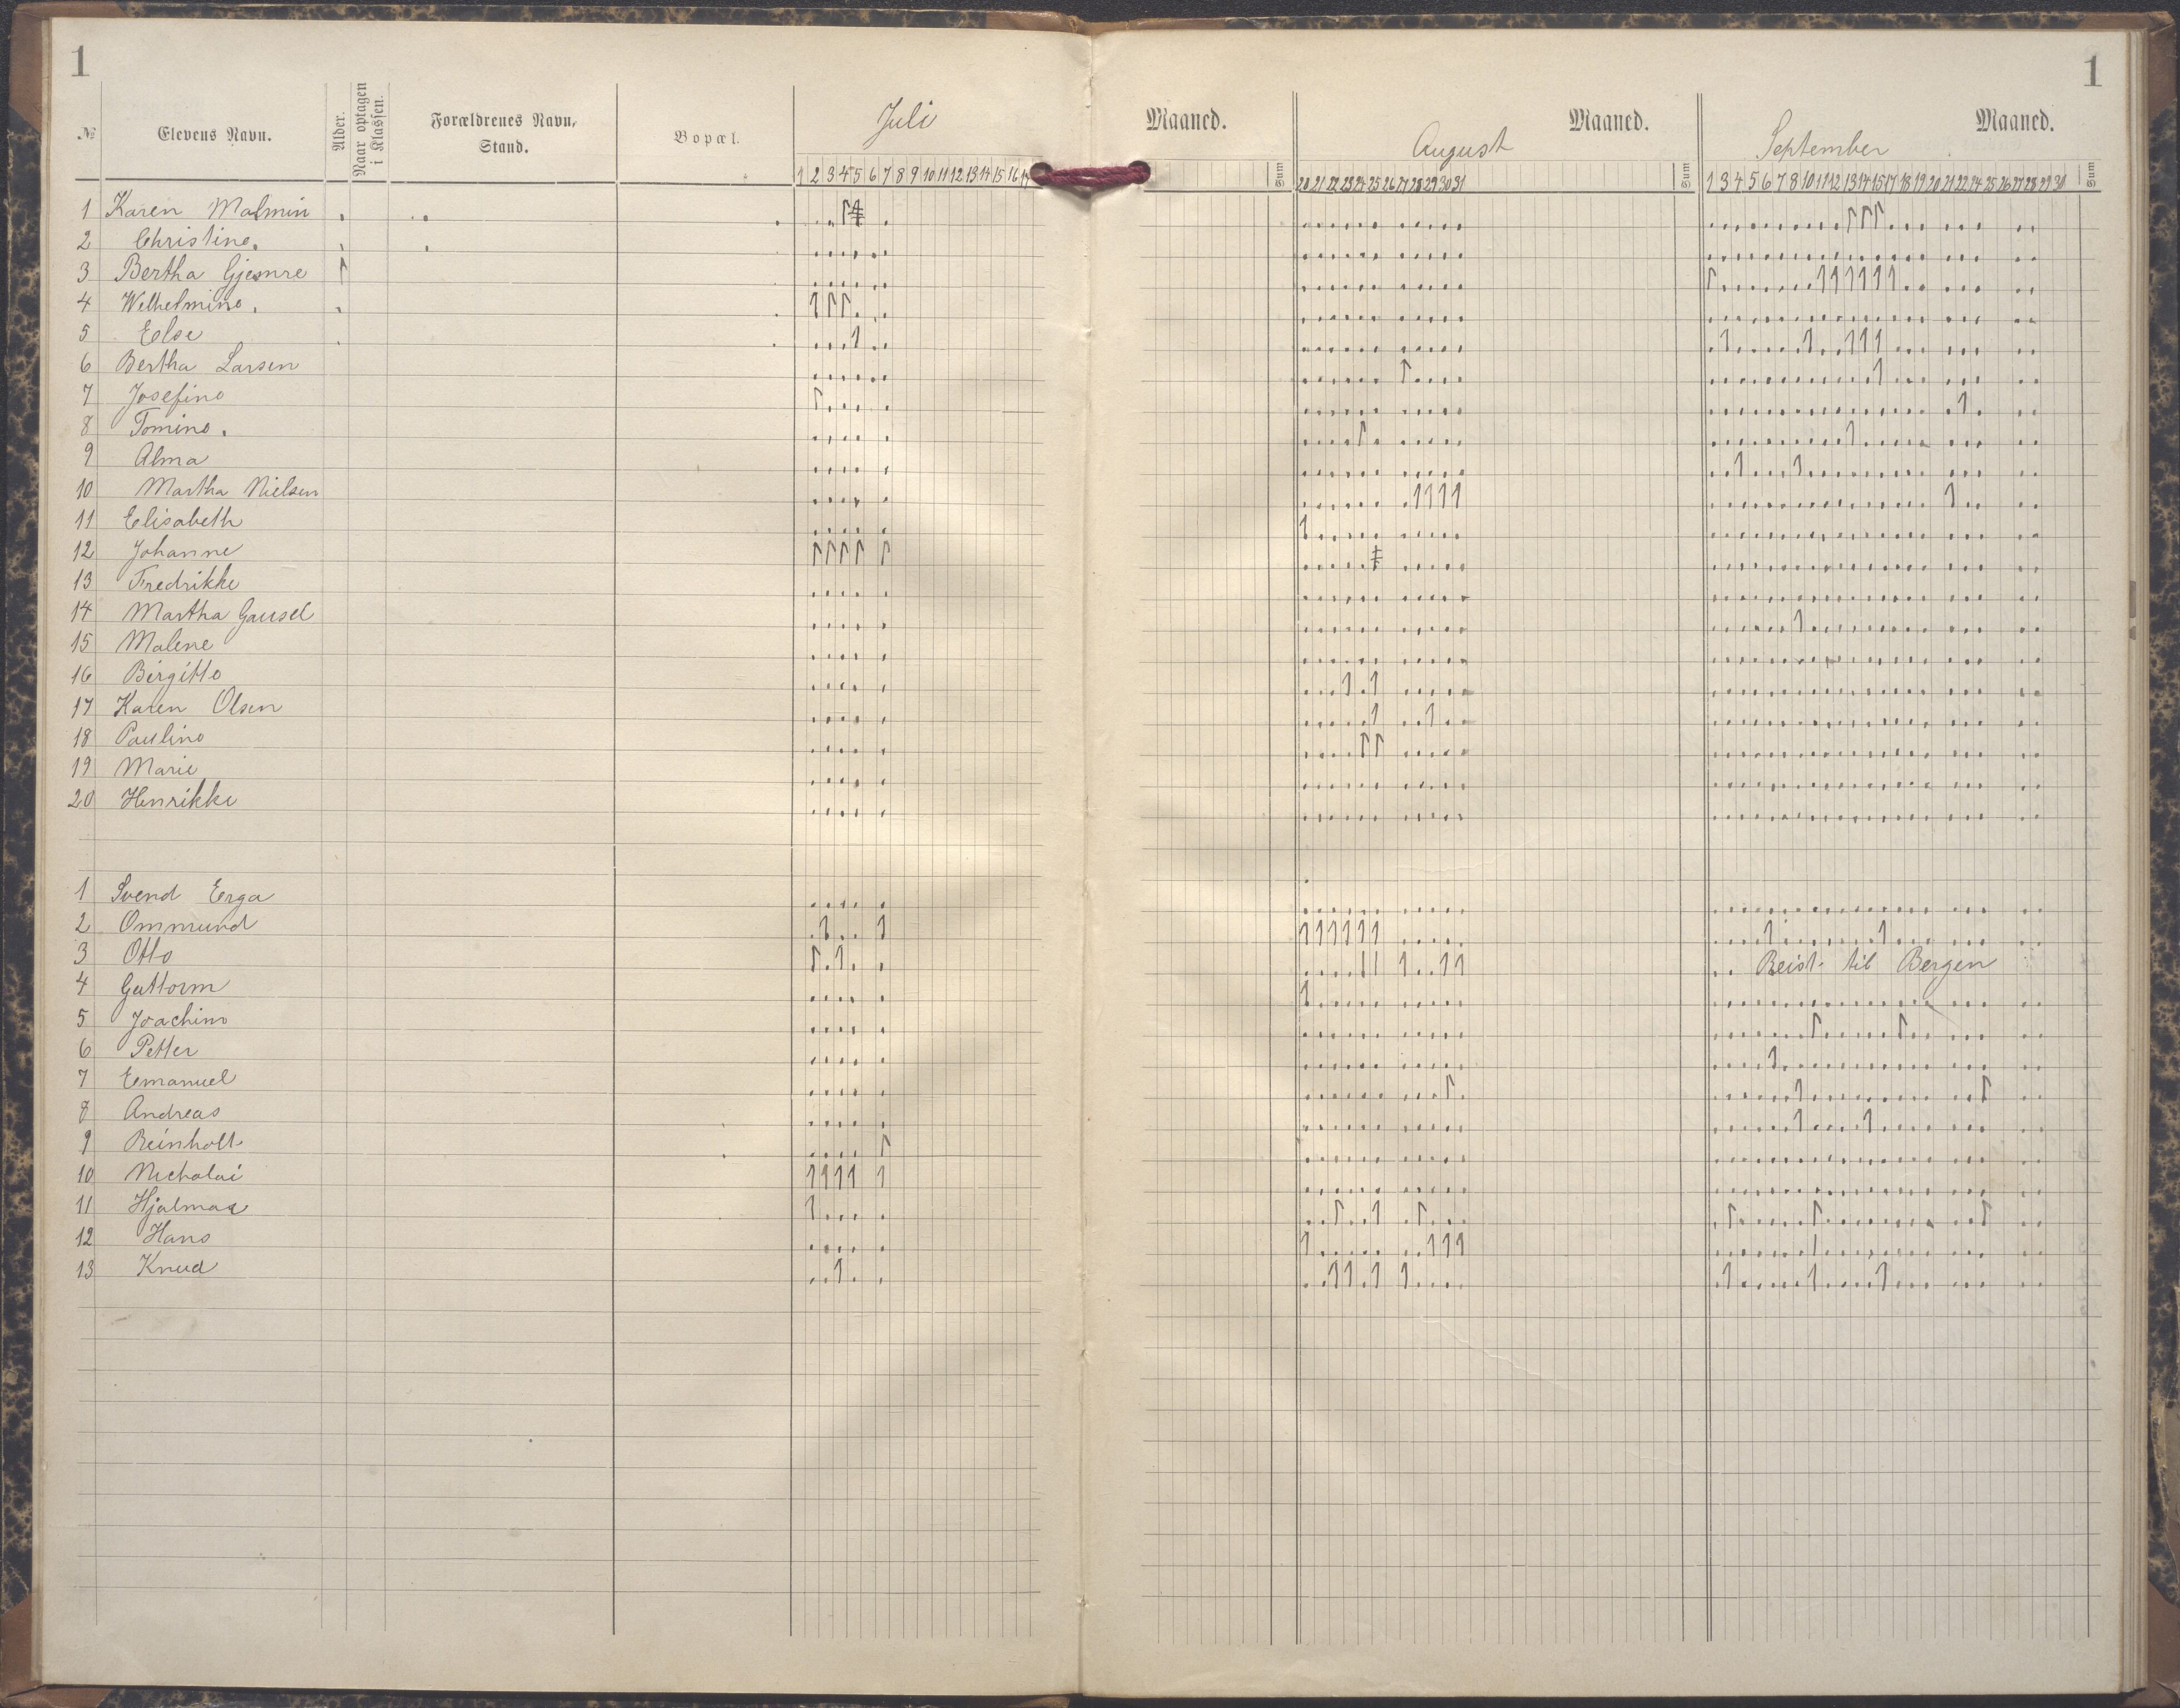 1
1
№ Elevens Navn. Alder. Naar optagen i Klassen. Forældrenes Navn, Stand. Bopæl. Juli Maaned. Sum August Maaned. Sum September Maaned. Sum
1 2 3 4 5 6 7 8 9 10 11 12 13 14 15 16 17
20 21 22 23 24 25 26 27 28 29 30 31
1 3 4 5 6 7 8 10 11 12 13 14 15 17 18 19 20 21 22 24 25 26 27 28 29 30
1 Karen Malmin
2 Christine.
3 Bertha Gjemre
4 Welhelmine.
5 Else
6 Bertha Larsen
7 Josefine
8 Tomine.
9 Alma
10 Martha Nielsen
11 Elisabeth
12 Johanne
13 Fredrikke
14 Martha Gausel
15 Malene
16 Birgitte
17 Karen Olsen
18 Pauline
19 Marie
20 Henrikke
1 Svend Erga
2 Ommund
3 Otto Reist til Bergen
4 Guttorm
5 Joachim
6 Petter
7 Emanuel
8 Andreas
9 Reinholt
10 Nicholai
11 Hjalmar
12 Hans
13 Knud